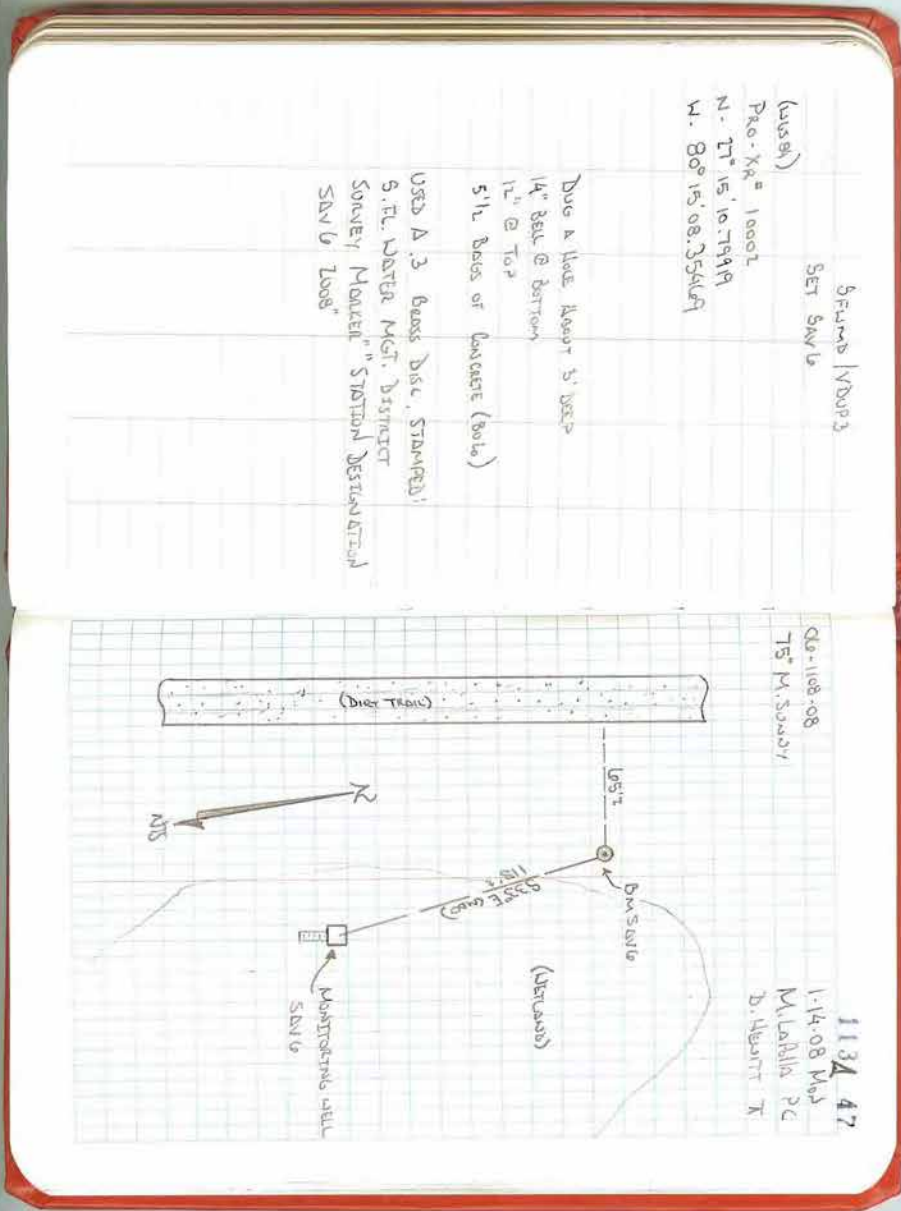 SFWMD / VDUP3
SET SAV6
(WGS84)
PRO-XR = 10002
N. 27° 15' 10.79919
W. 80° 15' 08.35469
DUG A HOLE ABOUT 3' DEEP
14" BELL @ BOTTOM
12" @ TOP
5 1/2 BAGS OF CONCRETE (80lb)
USED A .3 BRASS DISC, STAMPED:
S. FL. WATER MGT. DISTRICT
SURVEY MARKER "STATION DESIGNATION
SAV6 2008"
06-1108-08
75° M. SUNNY
113A 47
1-14-08 MON
D. HEWITT
(DIRT TRAIL)
65'±
BM SAV6
118'±
(WETLAND)
NTS
MONITORING WELL
SAV6